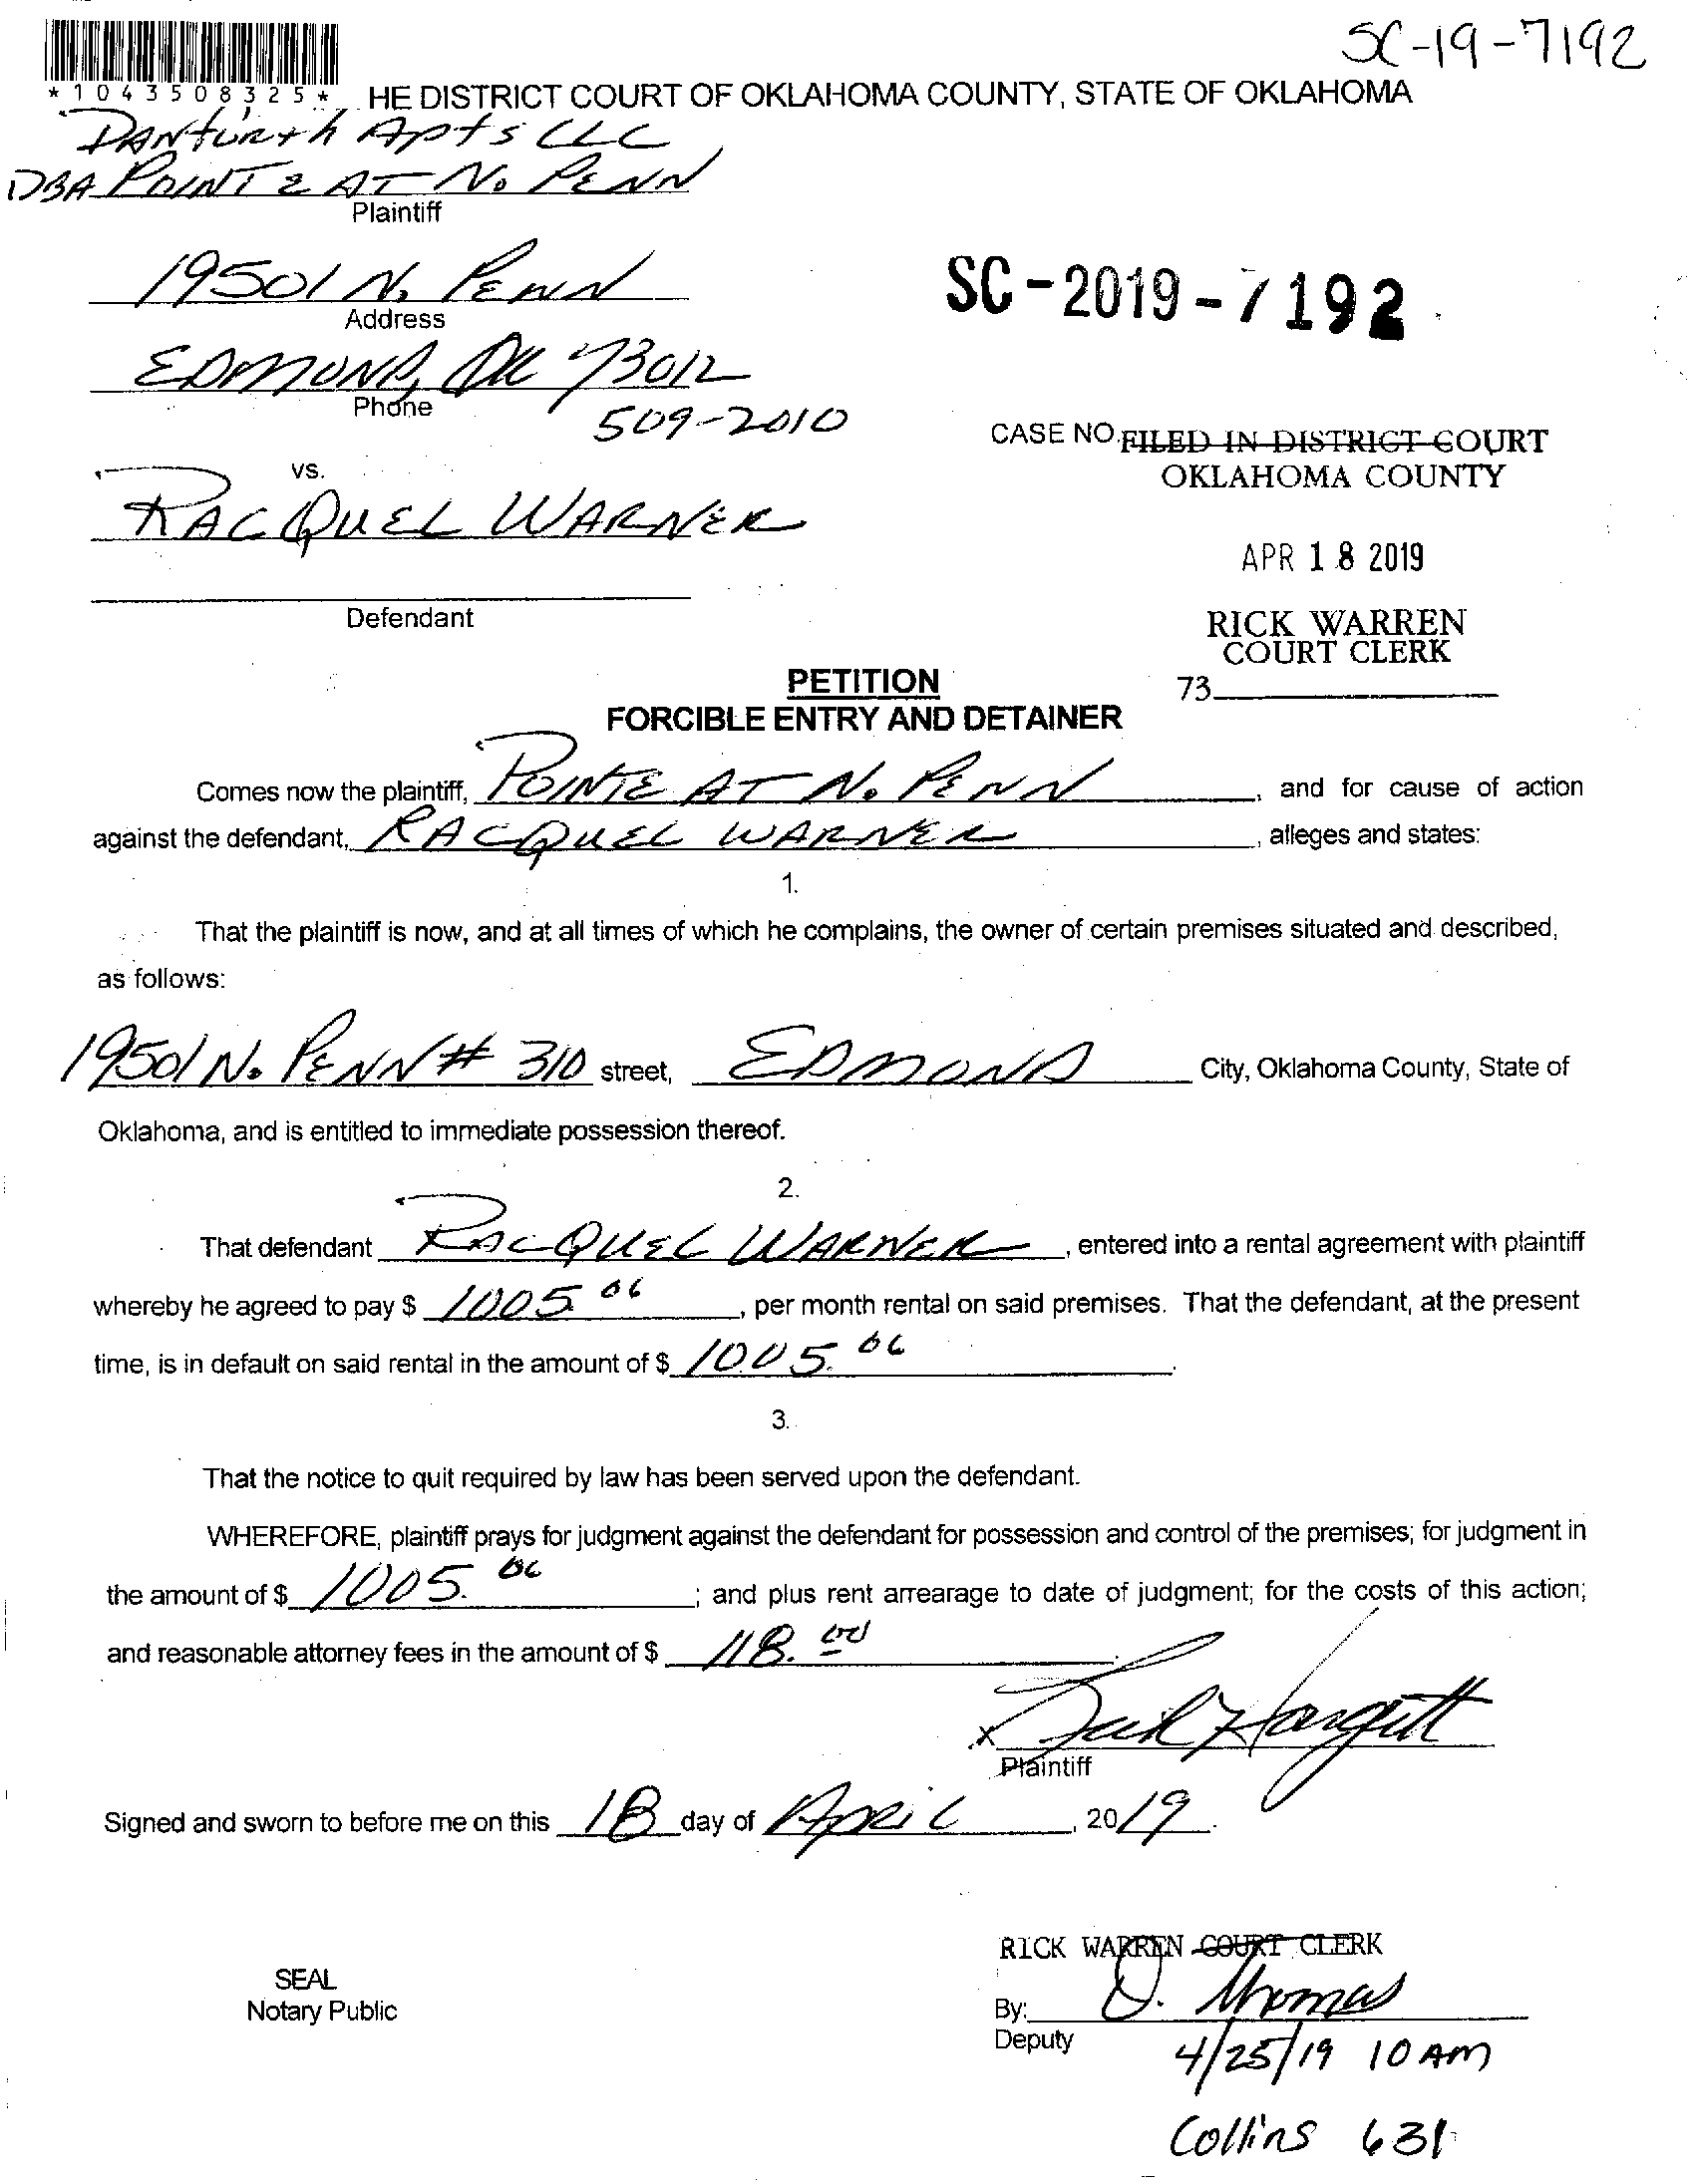 SC-19-7192
*1043508325*
HE DISTRICT COURT OF OKLAHOMA COUNTY, STATE OF OKLAHOMA
DANfURth Apts LLC
DBA POINTE AT N. PENN
Plaintiff
19501 N. PENN
Address
EDMOND, OK 73012
Phone
509-2010
SC-2019-7192
CASE NO. FILED IN DISTRICT COURT
OKLAHOMA COUNTY
vs.
RACQUEL WARNER
APR 18 2019
Defendant
RICK WARREN
COURT CLERK
73
PETITION
FORCIBLE ENTRY AND DETAINER
Comes now the plaintiff, POINTE AT N. PENN, and for cause of action
against the defendant, RACQUEL WARNER, alleges and states:
1.
That the plaintiff is now, and at all times of which he complains, the owner of certain premises situated and described,
as follows:
19501 N. PENN # 310 street, EDMOND City, Oklahoma County, State of
Oklahoma, and is entitled to immediate possession thereof.
2.
That defendant RACQUEL WARNER, entered into a rental agreement with plaintiff
whereby he agreed to pay $ 1005.06, per month rental on said premises. That the defendant, at the present
time, is in default on said rental in the amount of $ 1005.06.
3.
That the notice to quit required by law has been served upon the defendant.
WHEREFORE, plaintiff prays for judgment against the defendant for possession and control of the premises; for judgment in
the amount of $ 1005.06; and plus rent arrearage to date of judgment; for the costs of this action;
and reasonable attorney fees in the amount of $ 118.00.
x Gail Hargett
Plaintiff
Signed and sworn to before me on this 18 day of April, 2019.
RICK WARREN COURT CLERK
SEAL
Notary Public
By: D. Thomas
Deputy
4/25/19 10 AM
Collins 631